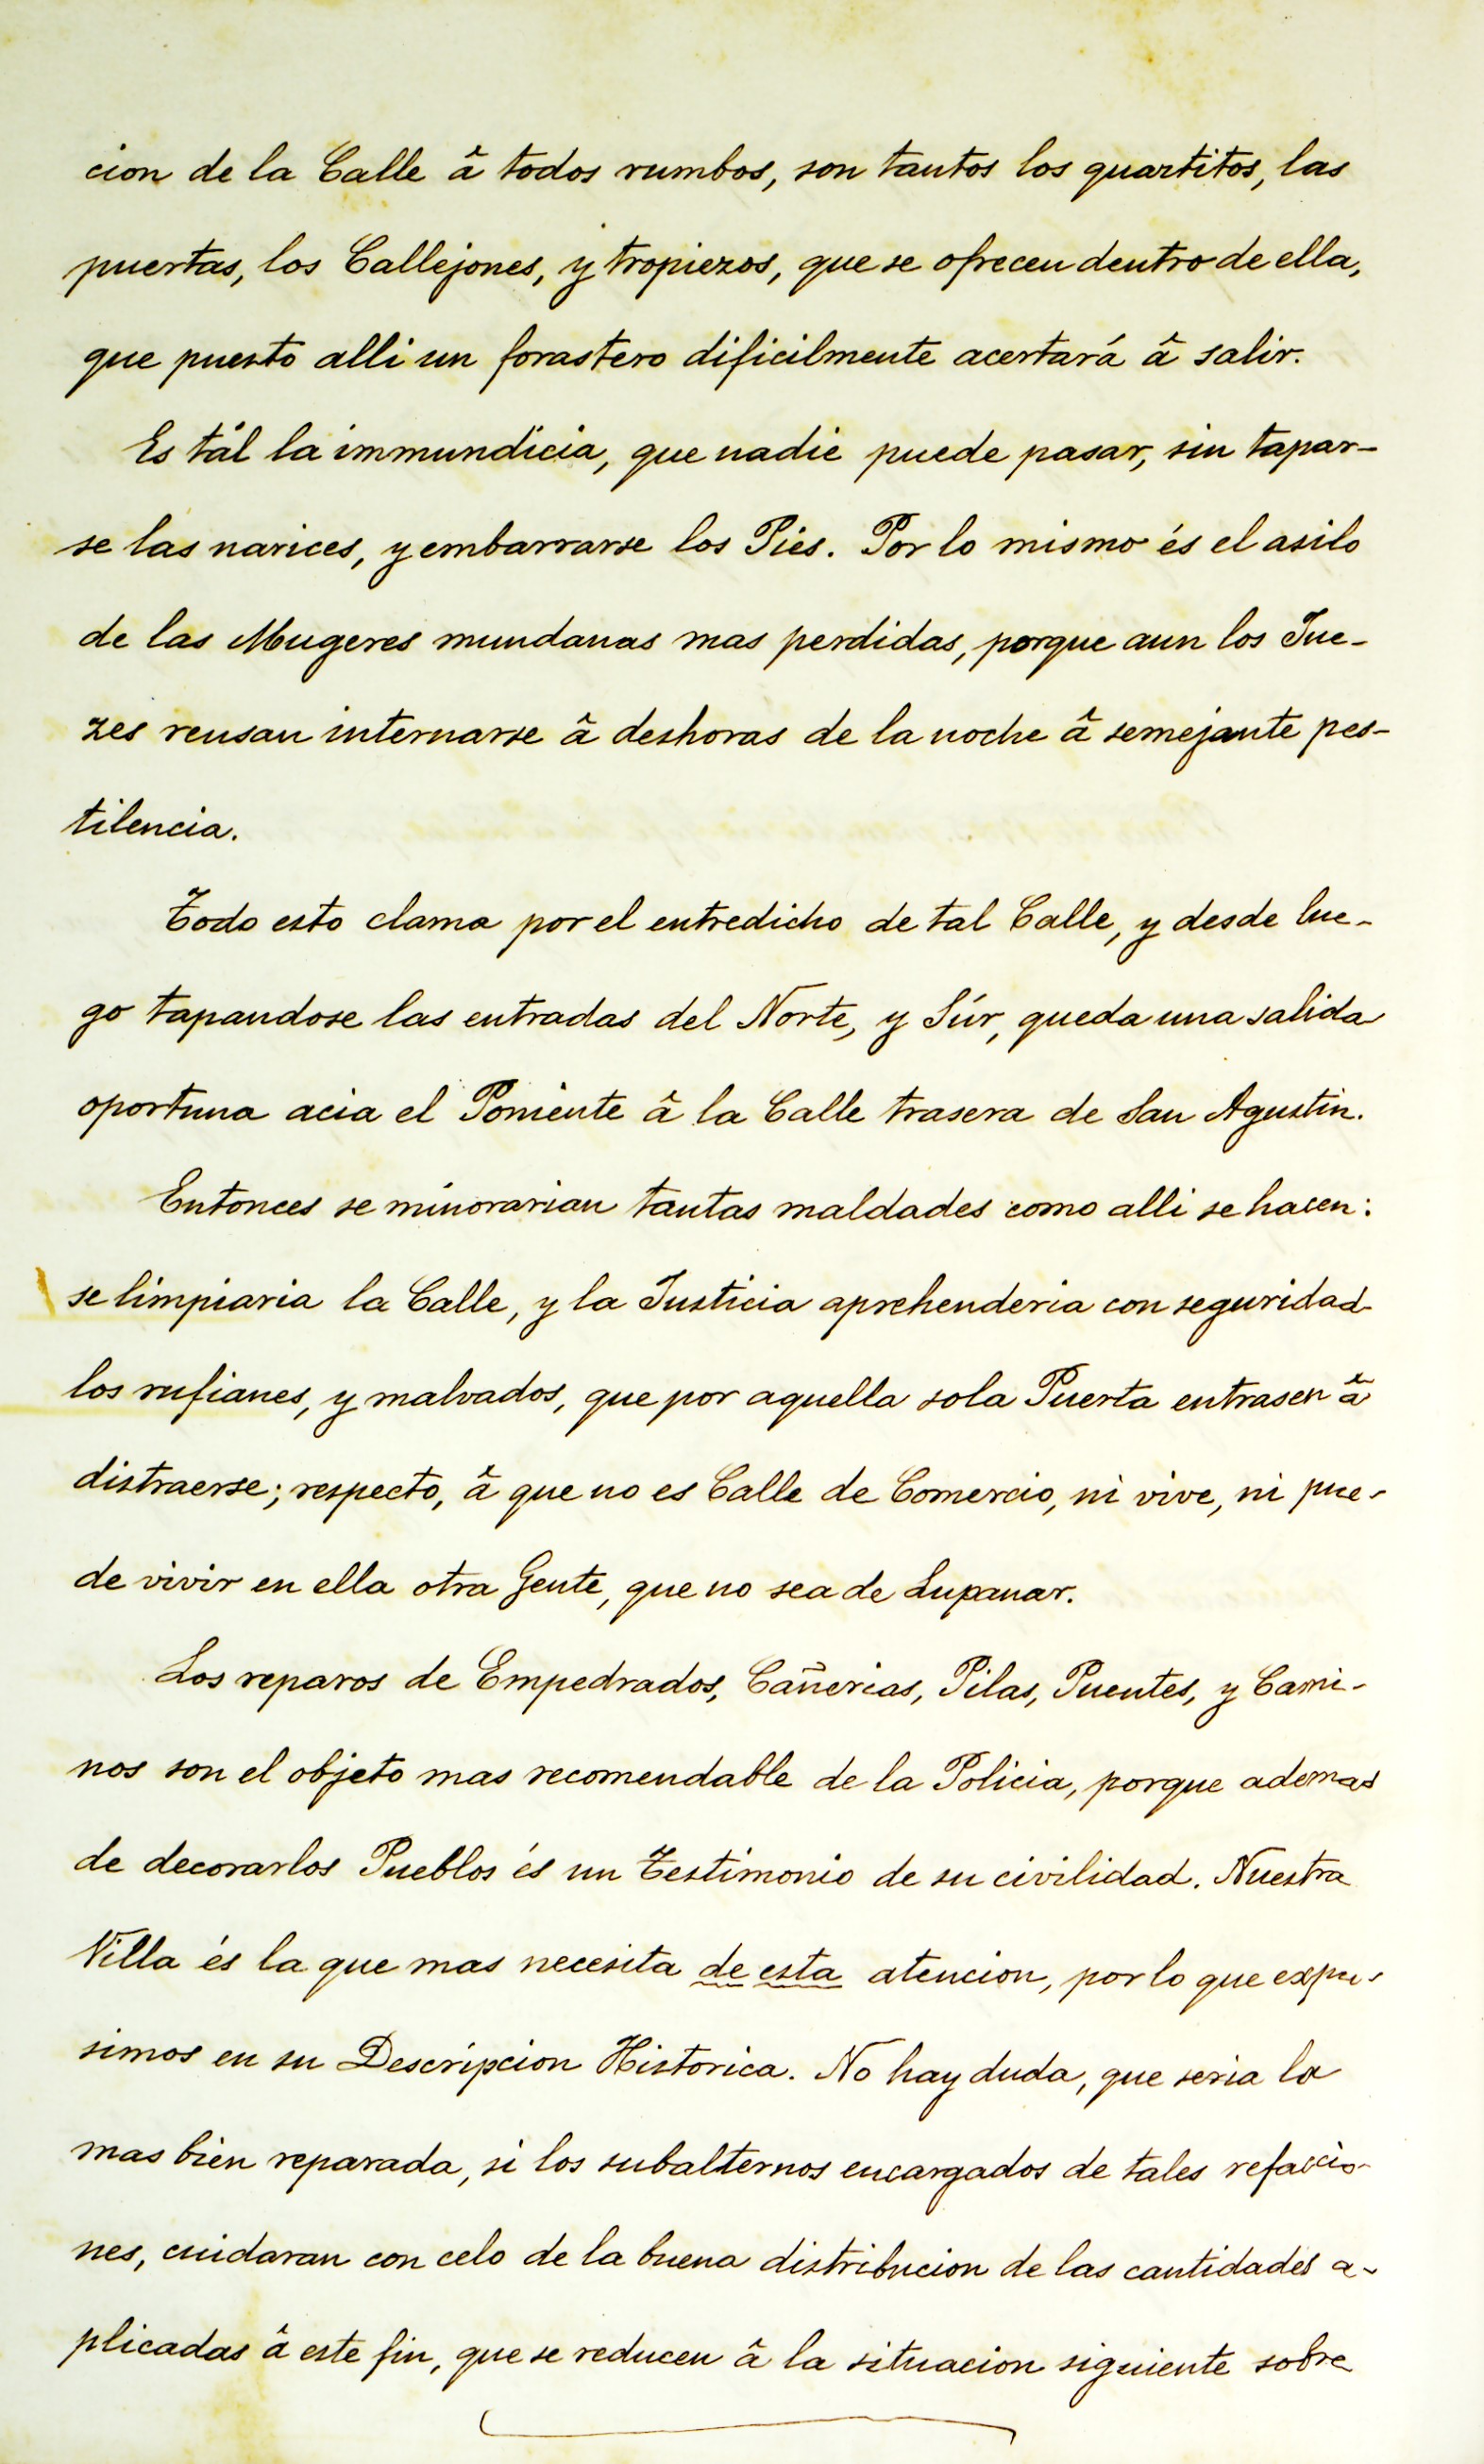 cion de la Calle â todos rumbos, son tantos los quartitos, las
puertas, los Callejones, y tropiezos, que se ofrecen dentro de ella,
que puesto alli un forastero dificilmente acertará â salir.
Es tál la immundicia, que nadie puede pasar, sin tapar-
se las narices, y embarrarse los Pies. Por lo mismo és el asilo
de las Mugeres mundanas mas perdidas, porque aun los Jue-
zes reusan internarse â deshoras de la noche â semejante pes-
tilencia.
Todo esto clama por el entredicho de tal Calle, y desde lue-
go tapandose las entradas del Norte, y Súr, queda una salida
oportuna acia el Poniente â la Calle trasera de San Agustin.
Entonces se minorarian tantas maldades como alli se hacen:
se limpiaria la Calle, y la Justicia aprehenderia con seguridad
los rufianes, y malvados, que por aquella sola Puerta entrasen â
distraerse; respecto, â que no es Calle de Comercio, ni vive, ni pue-
de vivir en ella otra Gente, que no sea de Lupanar.
Los reparos de Empedrados, Cañerias, Pilas, Puentes, y Cami-
nos son el objeto mas recomendable de la Policia, porque ademas
de decorarlos Pueblos és un Testimonio de su civilidad. Nuestra
Villa és la que mas necesita de esta atencion, por lo que expu-
simos en su Descripcion Historica. No hay duda, que seria la
mas bien reparada, si los subalternos encargados de tales refaccio-
nes, cuidaran con celo de la buena distribucion de las cantidades a-
plicadas â este fin, que se reducen â la situacion siguiente sobre